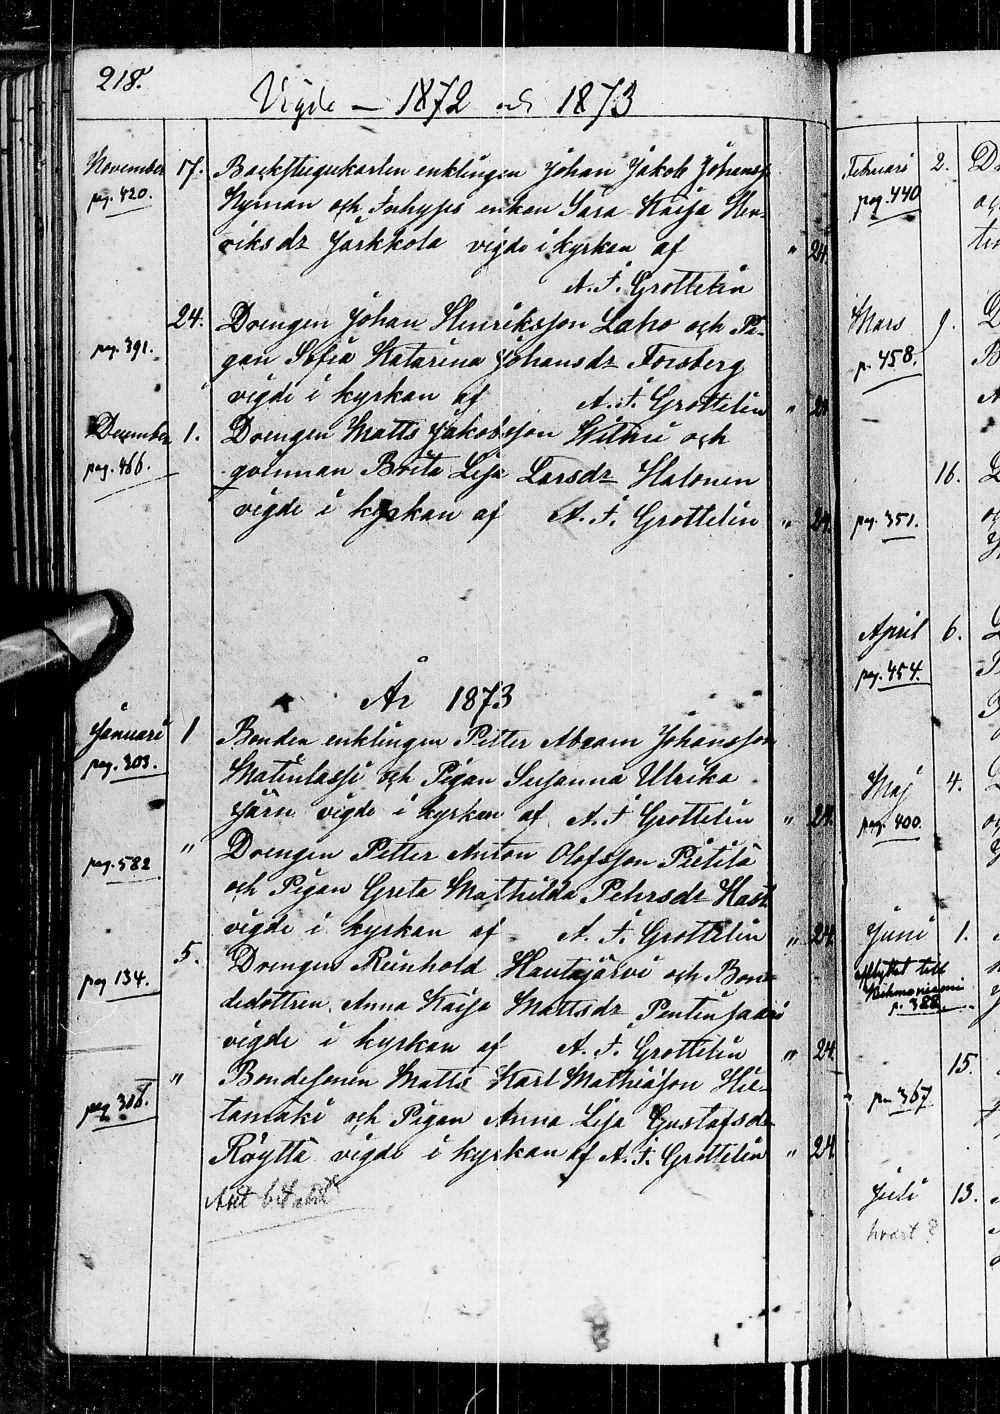 218.
Vigde — 1872 och 1873
November 17. Backstugukarlen enklingen Johan Jakob Johanss
pag. 420. Nyman och Inhyses enkan Sara Kaisa Hen-
riksdr Jarkkola vigde i kyrkan af " 24.
A. F. Grottelin
24. Drengen Johan Henriksson Laho och Pi-
pag. 391. gan Sofia Katarina Johansdr Forsberg
vigde i kyrkan af A. F. Grottelin " 24
December 1. Drengen Matts Jakobsson Wilhu och
pag. 466. qvinnan Brita Lisa Larsdr Halonen
vigde i kyrkan af A. F. Grottelin " 24.
År 1873
Januari 1 Bonden enklingen Petter Abram Johansson
pag. 303. Matinlassi och Pigan Susanna Ulrika
Järn vigde i kyrkan af A. F Grottelin " 24.
" Drengen Petter Anton Olofsson Pietilä
pag. 582 och Pigan Greta Mathilda Pehrsdr Hast
vigde i kyrkan af A. F. Grottelin " 24.
5. Drengen Reinhold Hautajärvi och Bon-
pag 134. dedottren Anna Kaisa Mattsdr Pentinsaari
vigde i kyrkan af A. F. Grottelin " 24.
" Bondesonen Matts Karl Mathiasson Hie-
pag. 306 tamäki och Pigan Anna Lisa Gustafsdr
Röyttä vigde i kyrkan af A. F. Grottelin " 24
Februari 2.
pag. 440
Mars 9.
p. 458.
16.
pag. 351.
April 6.
pag. 454.
Maj 4.
pag. 400.
Juni 1.
till
p. 388.
15.
367
Juli 13.
hvart?